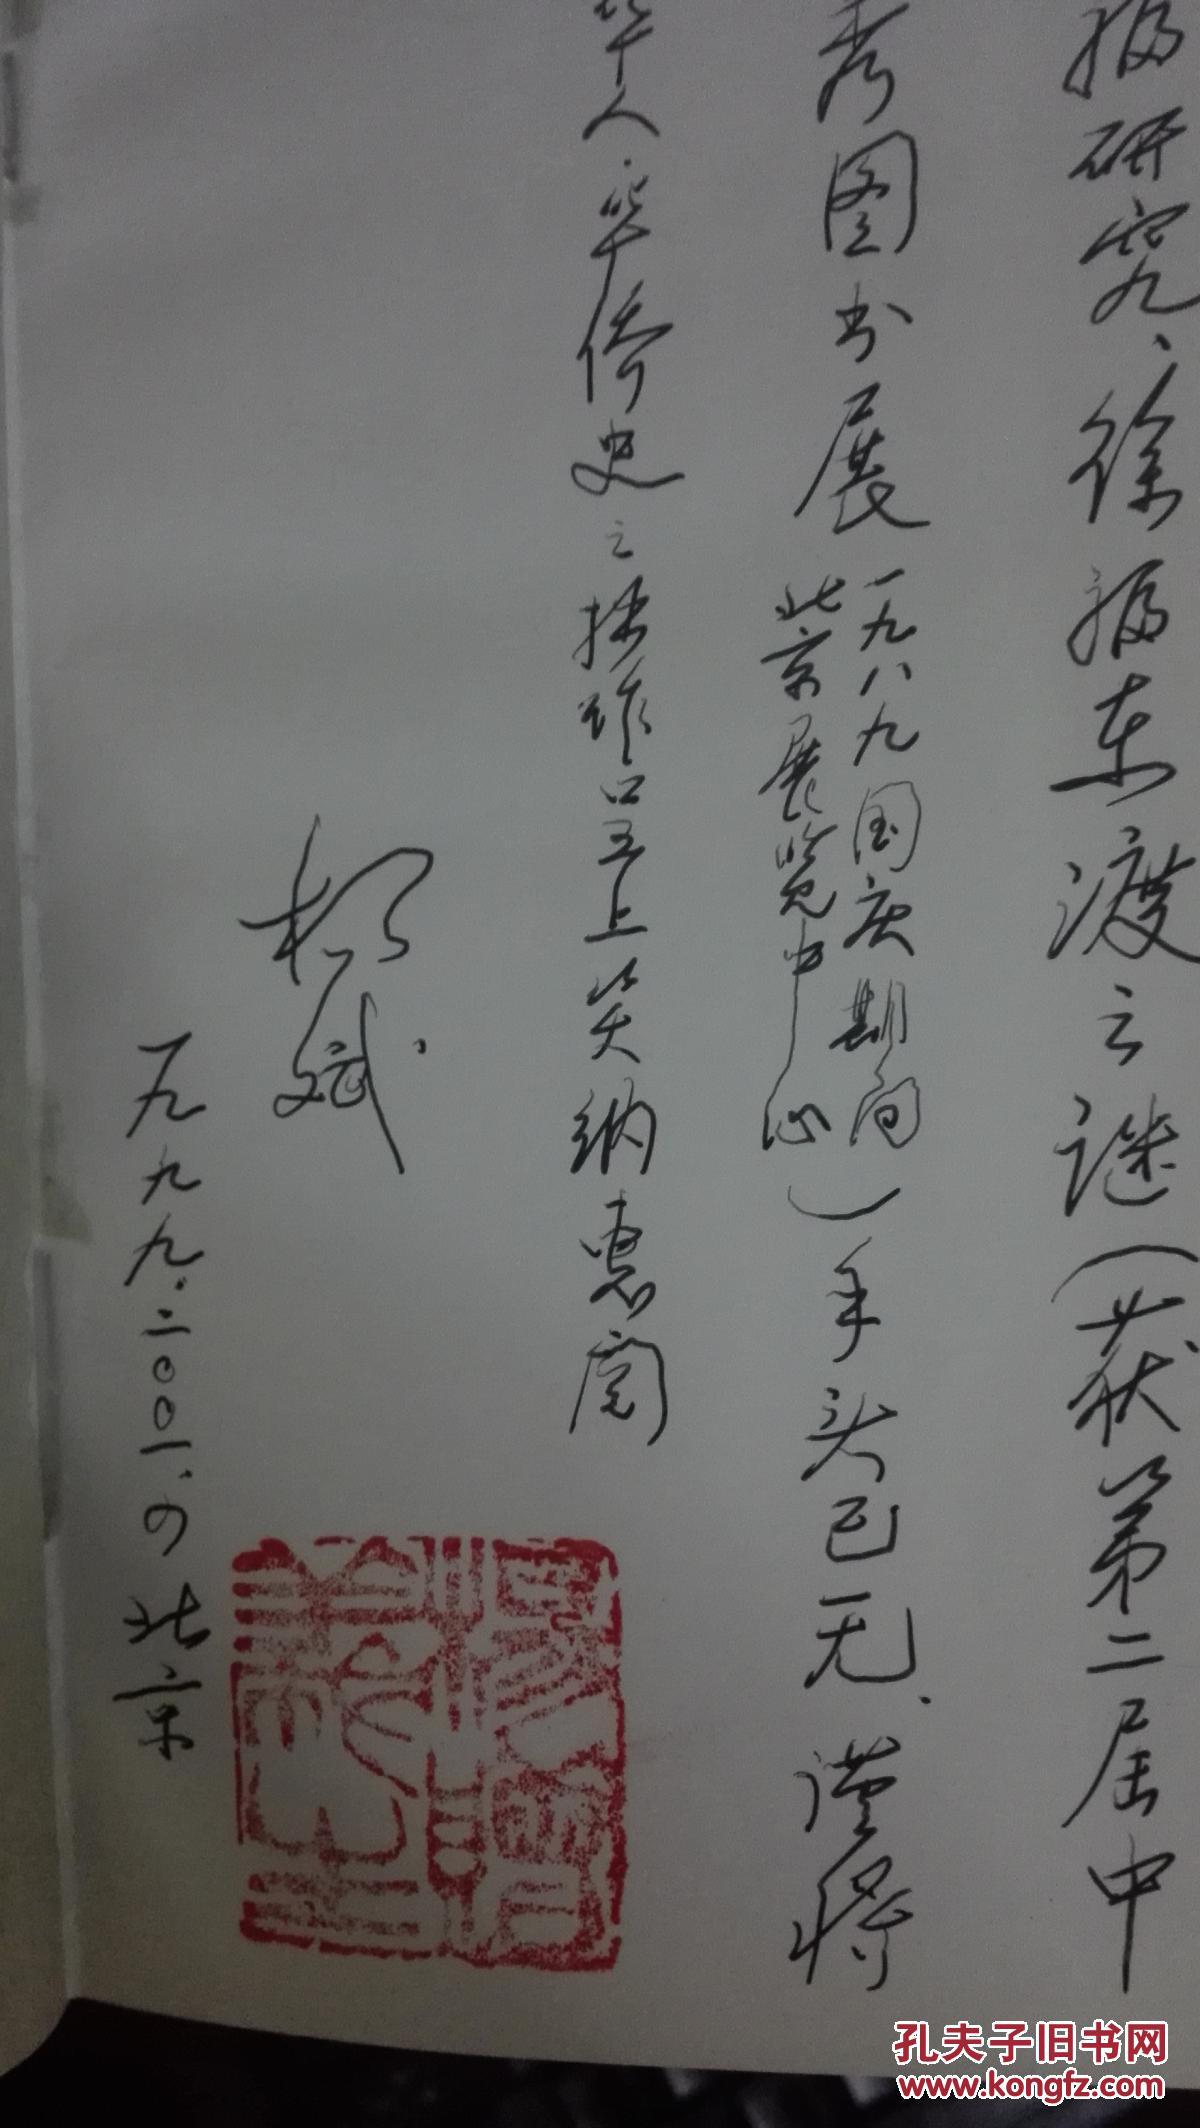 福研究、徐福东渡之谜（获第二届中
秀图书展
一九八九国庆期间
北京展览中心）
手头已无、谨将
华人·华侨史之拙作呈上笑纳惠阅
斌
一九九九.二〇〇一、四 北京
孔夫子旧书网
www.kongfz.com